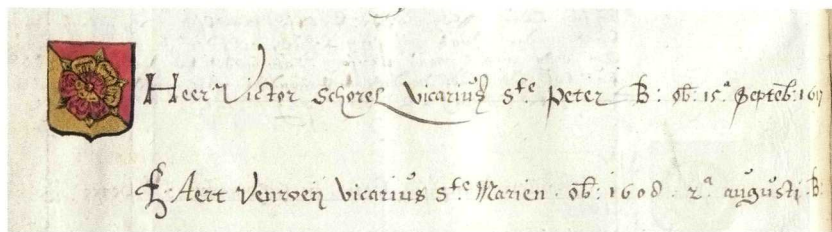 Heer Victor Schorel vicarius Ste Peter B: ob: 15a Septeb: 1617
H. Aert Venroeij vicarius Ste Marien . ob: 1608 . 2a augusti . B: